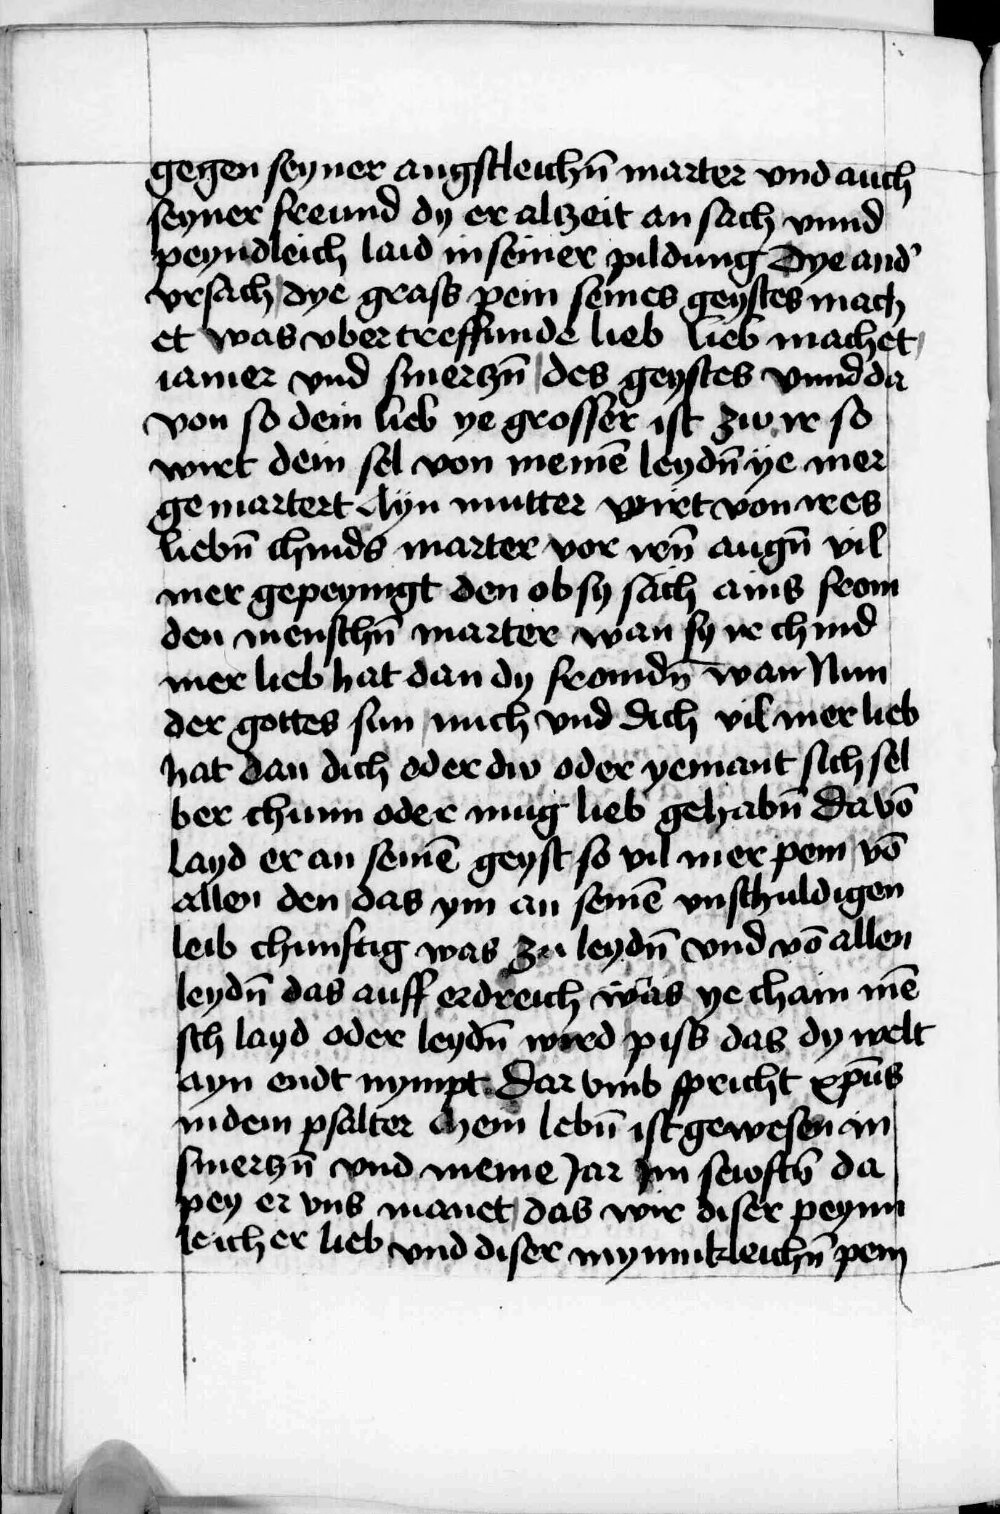 gegen seyner angstleichn̄ marter vnd auch
seyner freund dy er altzeit an sach vnnd
peyndleich laid in seiner pildung Dye and'
vrsach dye grass pein seines geystes mach
et was vbertreffunde lieb lieb machet
iamer vnd smertzn̄ des geystes vnnd da
von so dein lieb ye grosser ist zw ir so
wirt dein sel von meinē leydn̄ ye mer
gemartert Ayn mutter wirt von ires
liebn̄ chinds marter vor irn̄ augn̄ vil
mer gepeynigt den ob sy sach ains from
den menschn̄ marter wan sy ir chind
mer lieb hat dan dy fromdn̄ wan Nun
der gottes sun mich vnd dich vil mer lieb
hat dan dich oder dw oder yemant sich sel
ber chunn oder mug lieb gehabn̄ Da vō
layd er an seinē geyst so vil mer pein vō
allen den das ym an seinē vnschuldigen
leib chunftig was zu leydn̄ vnd vō allen
leydn̄ das auff erdreich was ye chain mē
sch layd oder leydn̄ wird piss das dy welt
ayn endt nympt Dar vmb spricht xp̄us
in dem psalter Mein lebn̄ ist gewesen in
smertzn̄ vnd meine Jar im sewftn̄ da
pey er vns manet das wir diser peynn
leicher lieb vnd diser mynnikleichn̄ pein